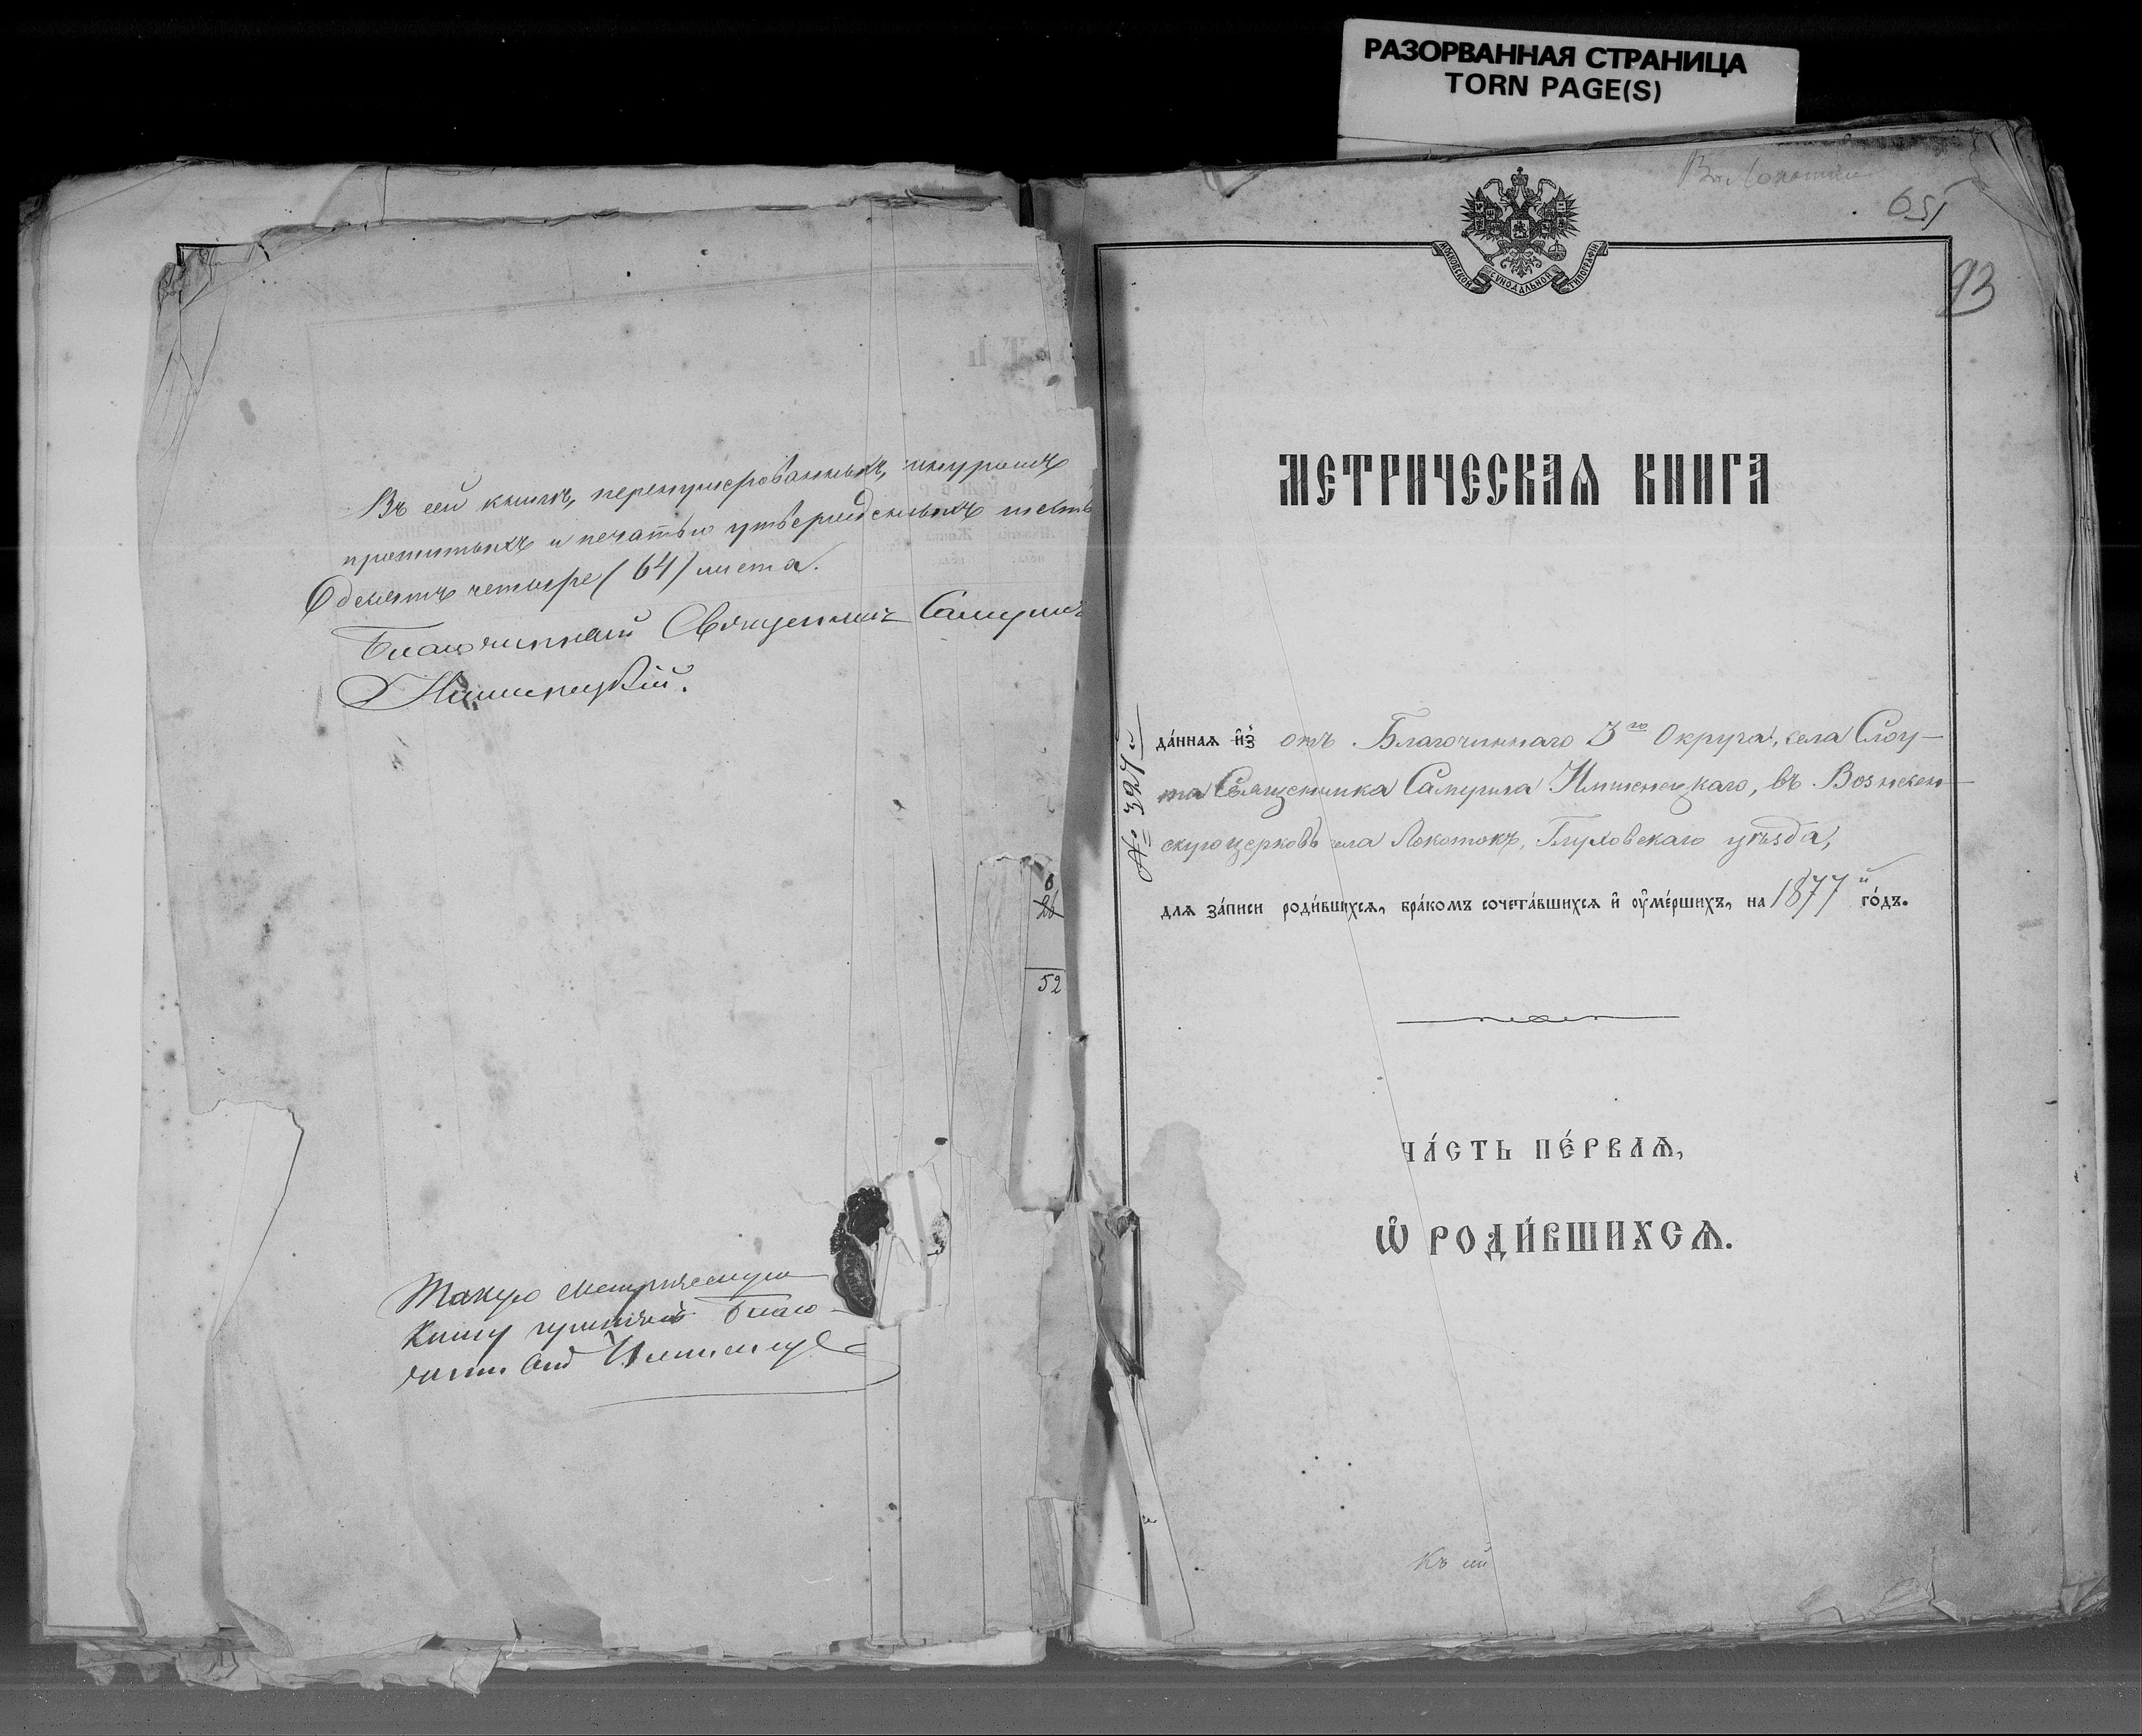 РАЗОРВАННАЯ СТРАНИЦА
TORN PAGE(S)
Въ сей книгѣ, перенумерованныхъ, шнуромъ
прошитыхъ и печатью утвержденныхъ шесть
десятъ четыре (64) листа.
Благочинный Священникъ Самуилъ
Имшенецкій.
6
26
52
Такую метрическую
книгу
МОСКОВСКОЙ СѴНОДАЛЬНОЙ ТИПОГРАФІИ
93
МЕТРИЧЕСКАѦ КНИГА
№ 327й
да́ннаѧ и҆з̾ отъ Благочиннаго 3го Округа, села Слоу-
та Священника Самуила Имшенецкаго, въ Вознесен-
скую церковь села Локотокъ, Глуховскаго уѣзда,
длѧ за́писи роди́вшихсѧ, бра́комъ сочета́вшихсѧ и҆ ᲂу҆ме́ршихъ, на 1877й го́дъ.
ЧА́СТЬ ПЕ́РВАѦ,
Ѡ҆ РОДИ́ВШИХСѦ.